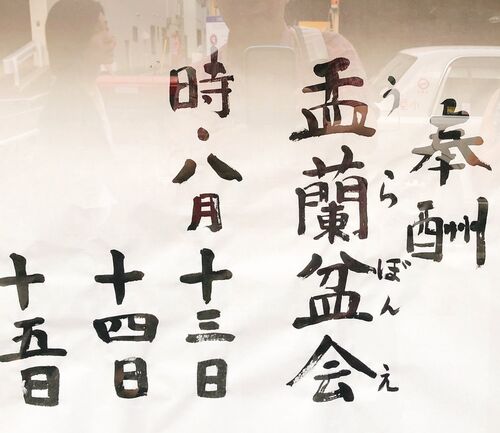 奉酬
盂蘭盆会
うらぼんえ
時・八月十三日
十四日
十五日